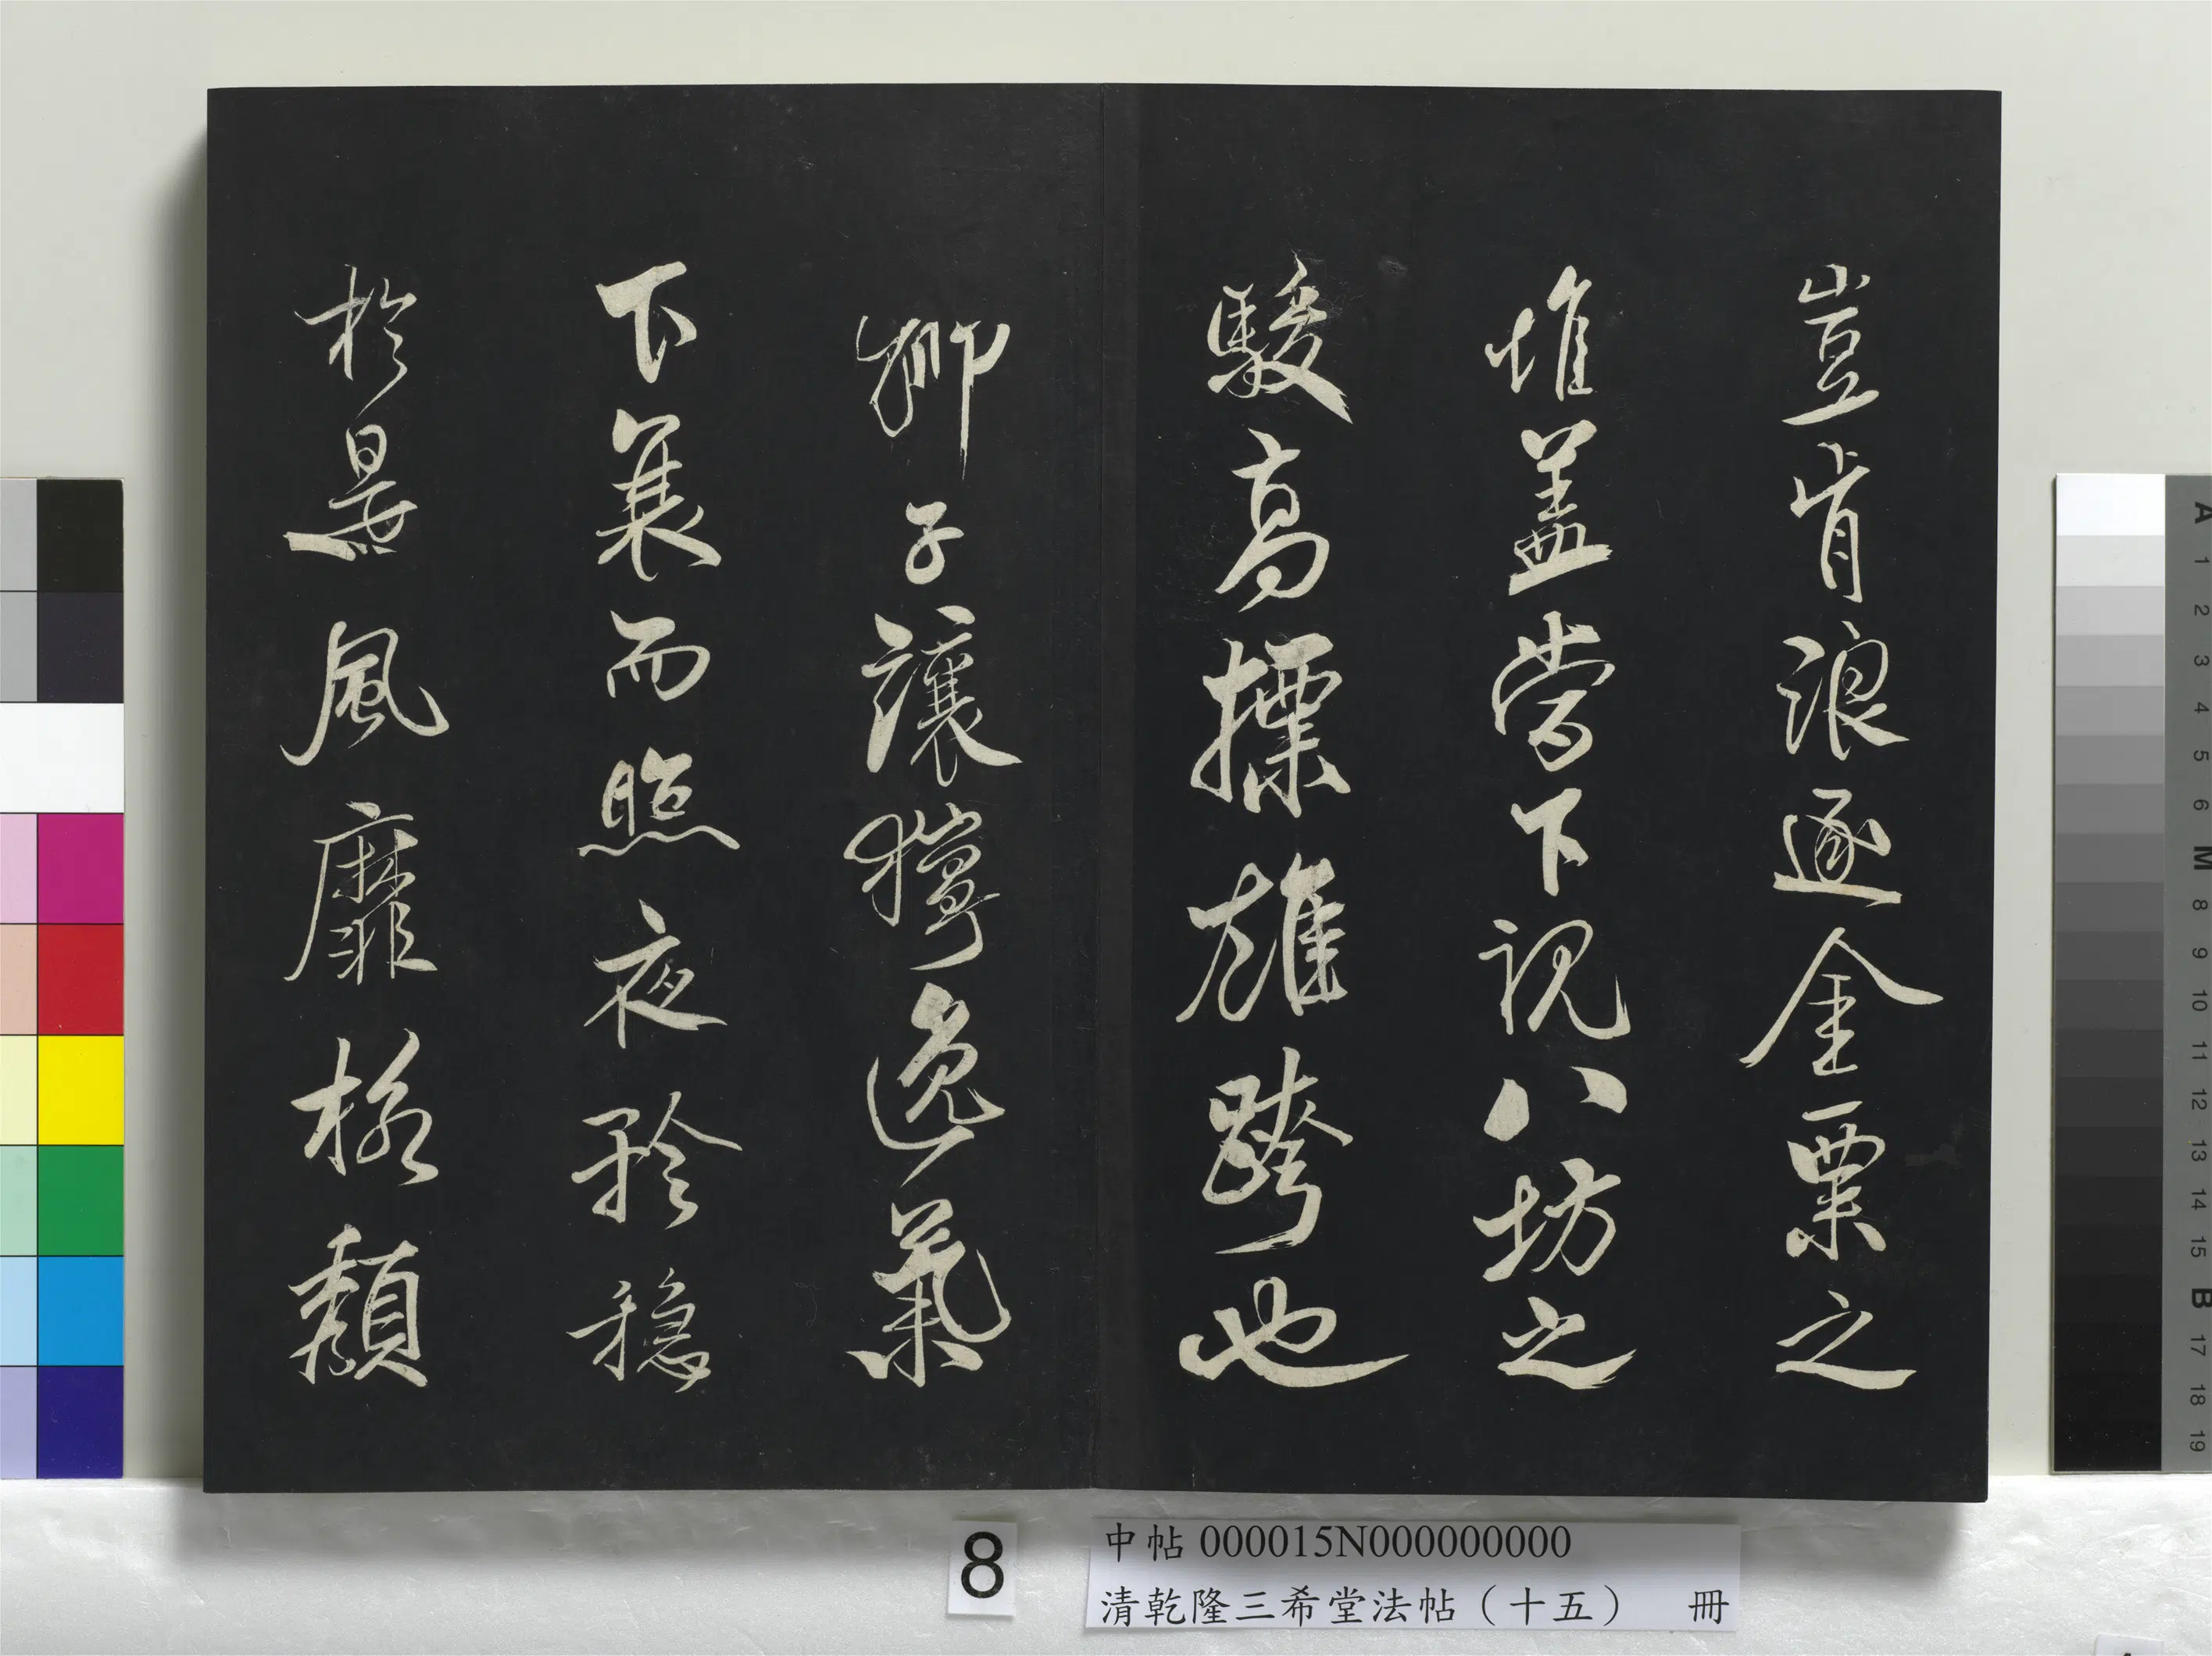 豈肯浪逐金粟之
堆盖當下視八坊之
駿高摽雄跨也
獅子讓獰逸氣
下衰而照夜矜穩
於是風靡格頹
8
中帖 000015N000000000
清乾隆三希堂法帖（十五） 冊
A 1 2 3 4 5 6 M 8 9 10 11 12 13 14 15 B 17 18 19